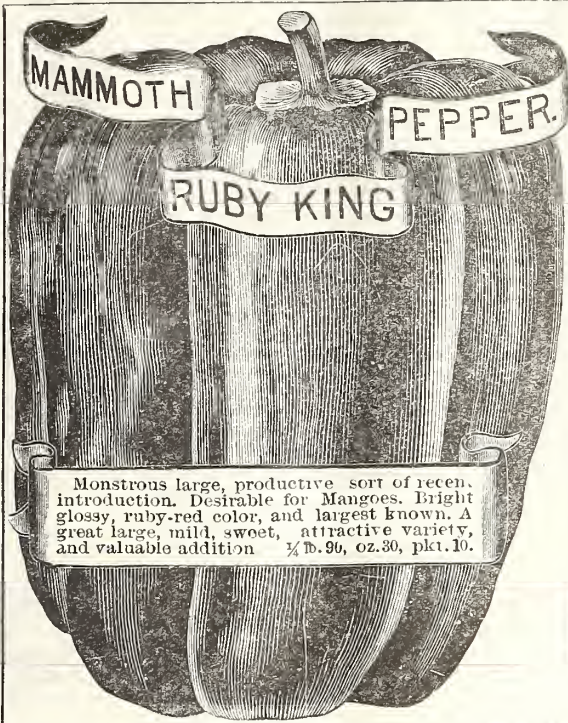 MAMMOTH
PEPPER.
RUBY KING
Monstrous large, productive sort of recen.
introduction. Desirable for Mangoes. Bright
glossy, ruby-red color, and largest known. A
great large, mild, sweet, attractive variety,
and valuable addition ¼ lb. 90, oz. 30, pkt. 10.